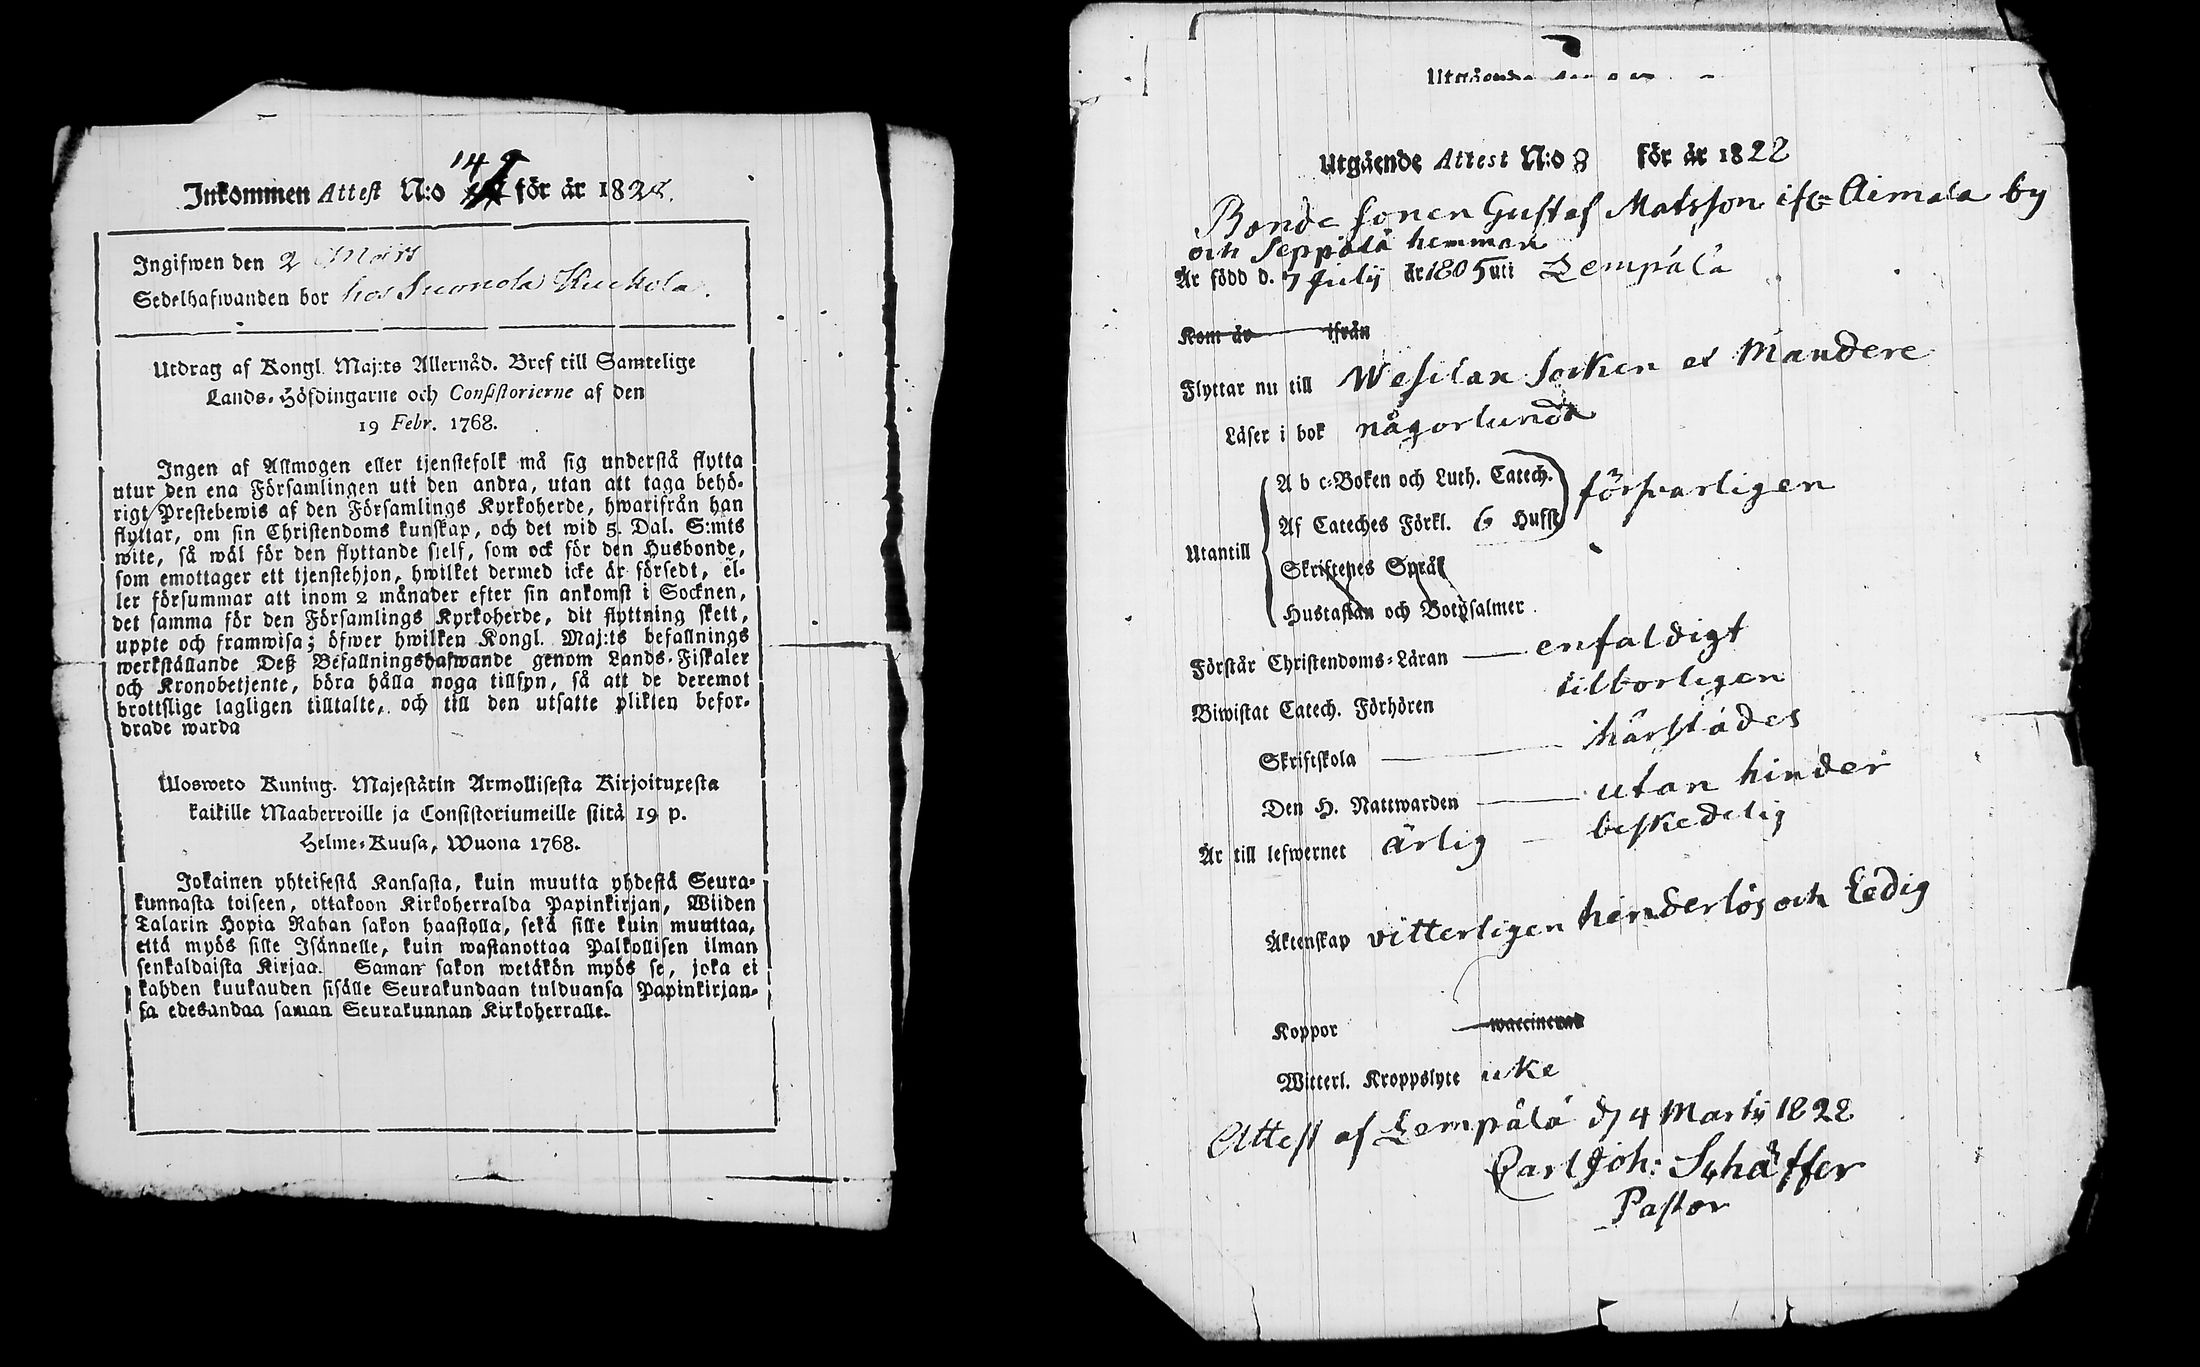 Inkommen Attest N:o 149 för år 1822.
Ingifwen den 2 Mars
Sedelhafwanden bor hos Suonola Kuckola.
Utdrag af Kongl. Maj:ts Allernåd. Bref till Samtelige
Lands-Höfdingarne och Consistorierne af den
19 Febr. 1768.
Ingen af Allmogen eller tjenstefolk må sig understå flytta
utur den ena Församlingen uti den andra, utan att taga behö-
rigt Prestebewis af den Församlings Kyrkoherde, hwarifrån han
flyttar, om sin Christendoms kunskap, och det wid 5. Dal. S:mts
wite, så wäl för den flyttande sielf, som ock för den Husbonde,
som emottager ett tjenstehjon, hwilket dermed icke är försedt, el-
ler försummar att inom 2 månader efter sin ankomst i Socknen,
det samma för den Församlings Kyrkoherde, dit flyttning skett,
uppte och framwisa; öfwer hwilken Kongl. Maj:ts befallnings
werkställande Deß Befallningshafwande genom Lands-Fiskaler
och Kronobetjente, böra hålla noga tillsyn, så att de deremot
brottslige lagligen tilltalte, och till den utsatte plikten befor-
drade warda
Ulosweto Kuning. Majestätin Armollisesta Kirjoituxesta
kaikille Maaherroille ja Consistoriumeille siitä 19 p.
Helme-Kuusa, Wuona 1768.
Jokainen yhteisestä Kansasta, kuin muutta yhdestä Seura-
kunnasta toiseen, ottakoon Kirkoherralda Papinkirjan, Wiiden
Talarin Hopia Rahan sakon haastolla, sekä sille kuin muuttaa,
että myös sille Isännelle, kuin wastanottaa Palkollisen ilman
senkaldaista Kirjaa. Saman sakon wetäkön myös se, joka ei
kahden kuukauden sisälle Seurakundaan tulduansa Papinkirjan-
sa edesandaa saman Seurakunnan Kirkoherralle.
Utgående Attest N:o 8 för år 1822
Bonde sonen Gustaf Matsson ifr: Aimala by
och Seppälä hemman
Är född d. 7 July år 1805 uti Lempälä
Kom år ifrån
Flyttar nu till Wesilax Socken et Mandere
Läser i bok någorlunda
A b c-Boken och Luth. Catech.
försvarligen
Af Cateches Förkl. 6 Hufst
Utantill
Skriftenes Språk
Hustaflan och Botpsalmer
Förstår Christendoms-Läran enfaldigt
Biwistat Catech. Förhören tilborligen
Skriftskola härstädes
Den H. Nattwarden utan hinder
Är till lefwernet ärlig beskedelig
Äktenskap vitterligen hinderlös och Ledig
Koppor waccinerad
Witterl. Kroppslyte icke
Attest af Lempälä d 4 Martii 1822
Carl Joh: Schäffer
Pastor